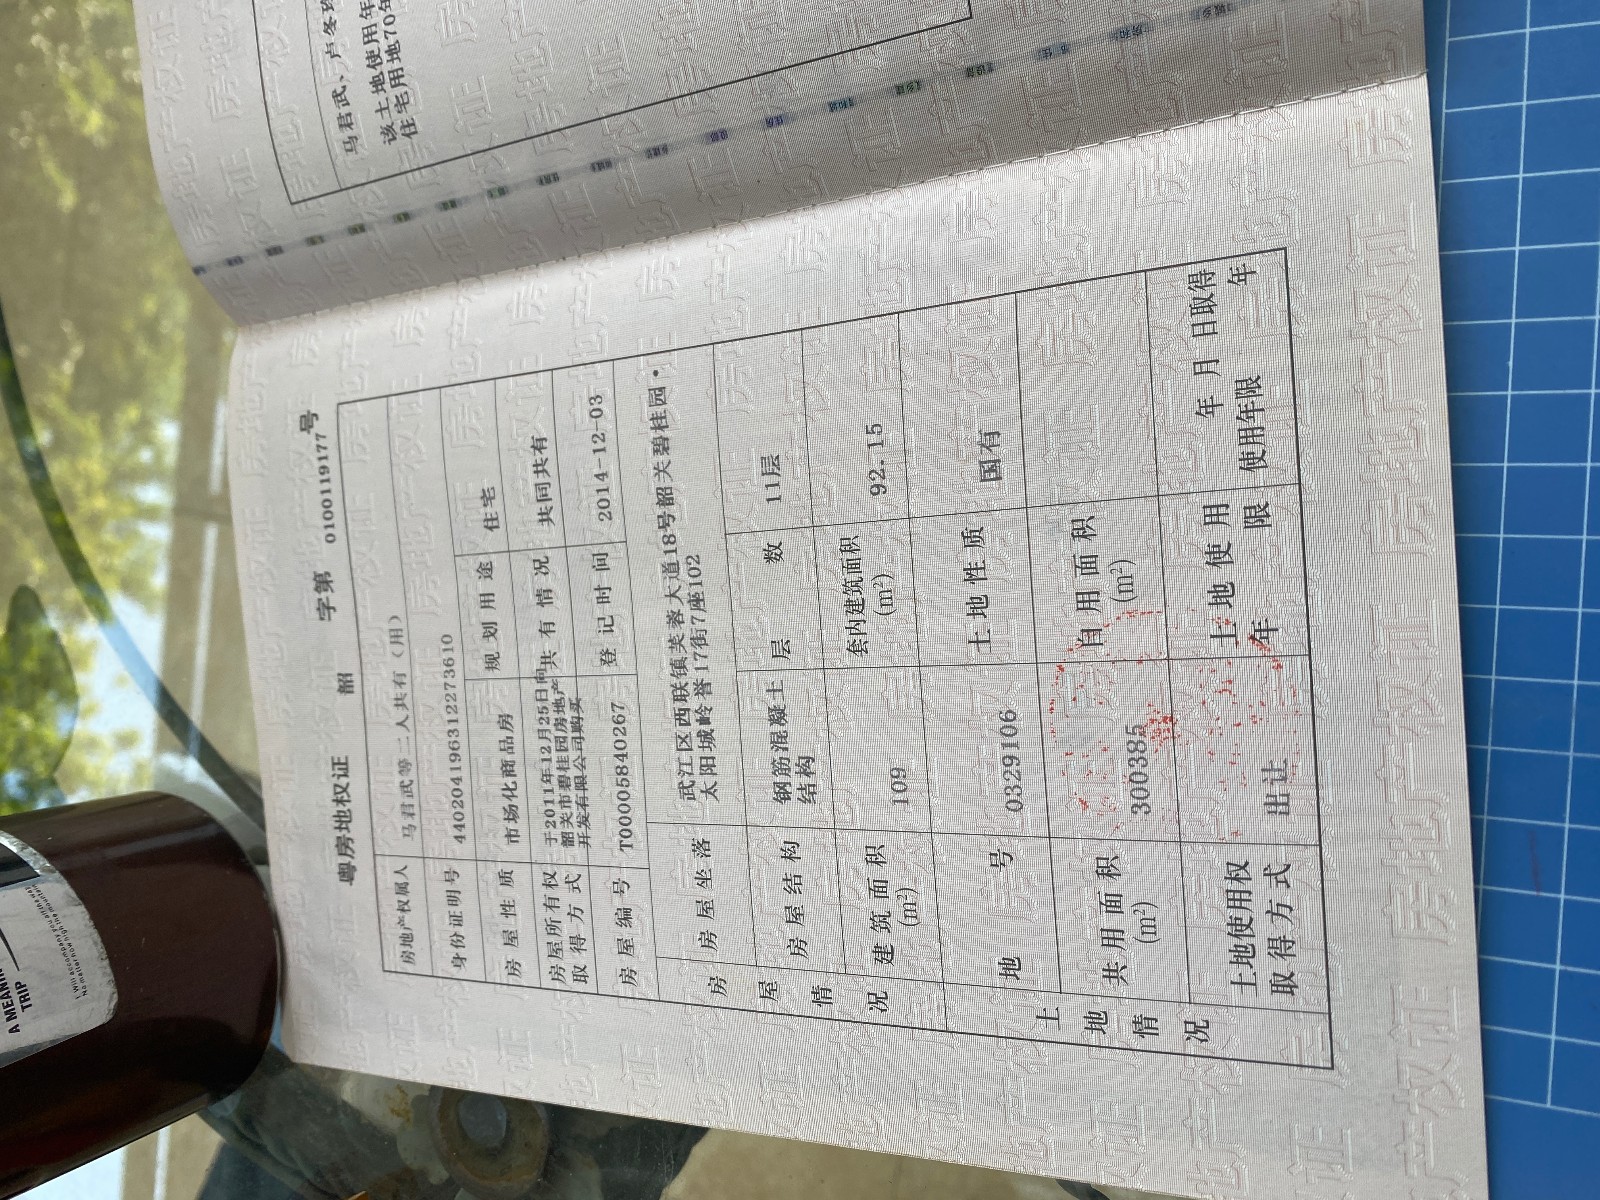 粤房地权证 韶 字第 0100119177 号
房地产权属人 马君武等二人共有(用)
身份证明号 440204196312273610
房屋性质 市场化商品房 规划用途 住宅
房屋所有权取得方式 于2011年12月25日向韶关市碧桂园房地产开发有限公司购买 共有情况 共同共有
房屋编号 T00005840267 登记时间 2014-12-03
房屋情况
房屋坐落 武江区西联镇芙蓉大道18号韶关碧桂园·
太阳城岭誉17街7座102
房屋结构 钢筋混凝土结构 层数 11层
建筑面积(m²) 109 套内建筑面积(m²) 92.15
土地情况
地号 0329106 土地性质 国有
共用面积(m²) 300385 自用面积(m²)
土地使用权取得方式 出让 土地使用年限 年 月 日取得
使用年限 年
马君武、卢冬
该土地使用年
住宅用地70年
A MEANIN
TRIP
I Will accompany you all the wa
No matter how high the mountain